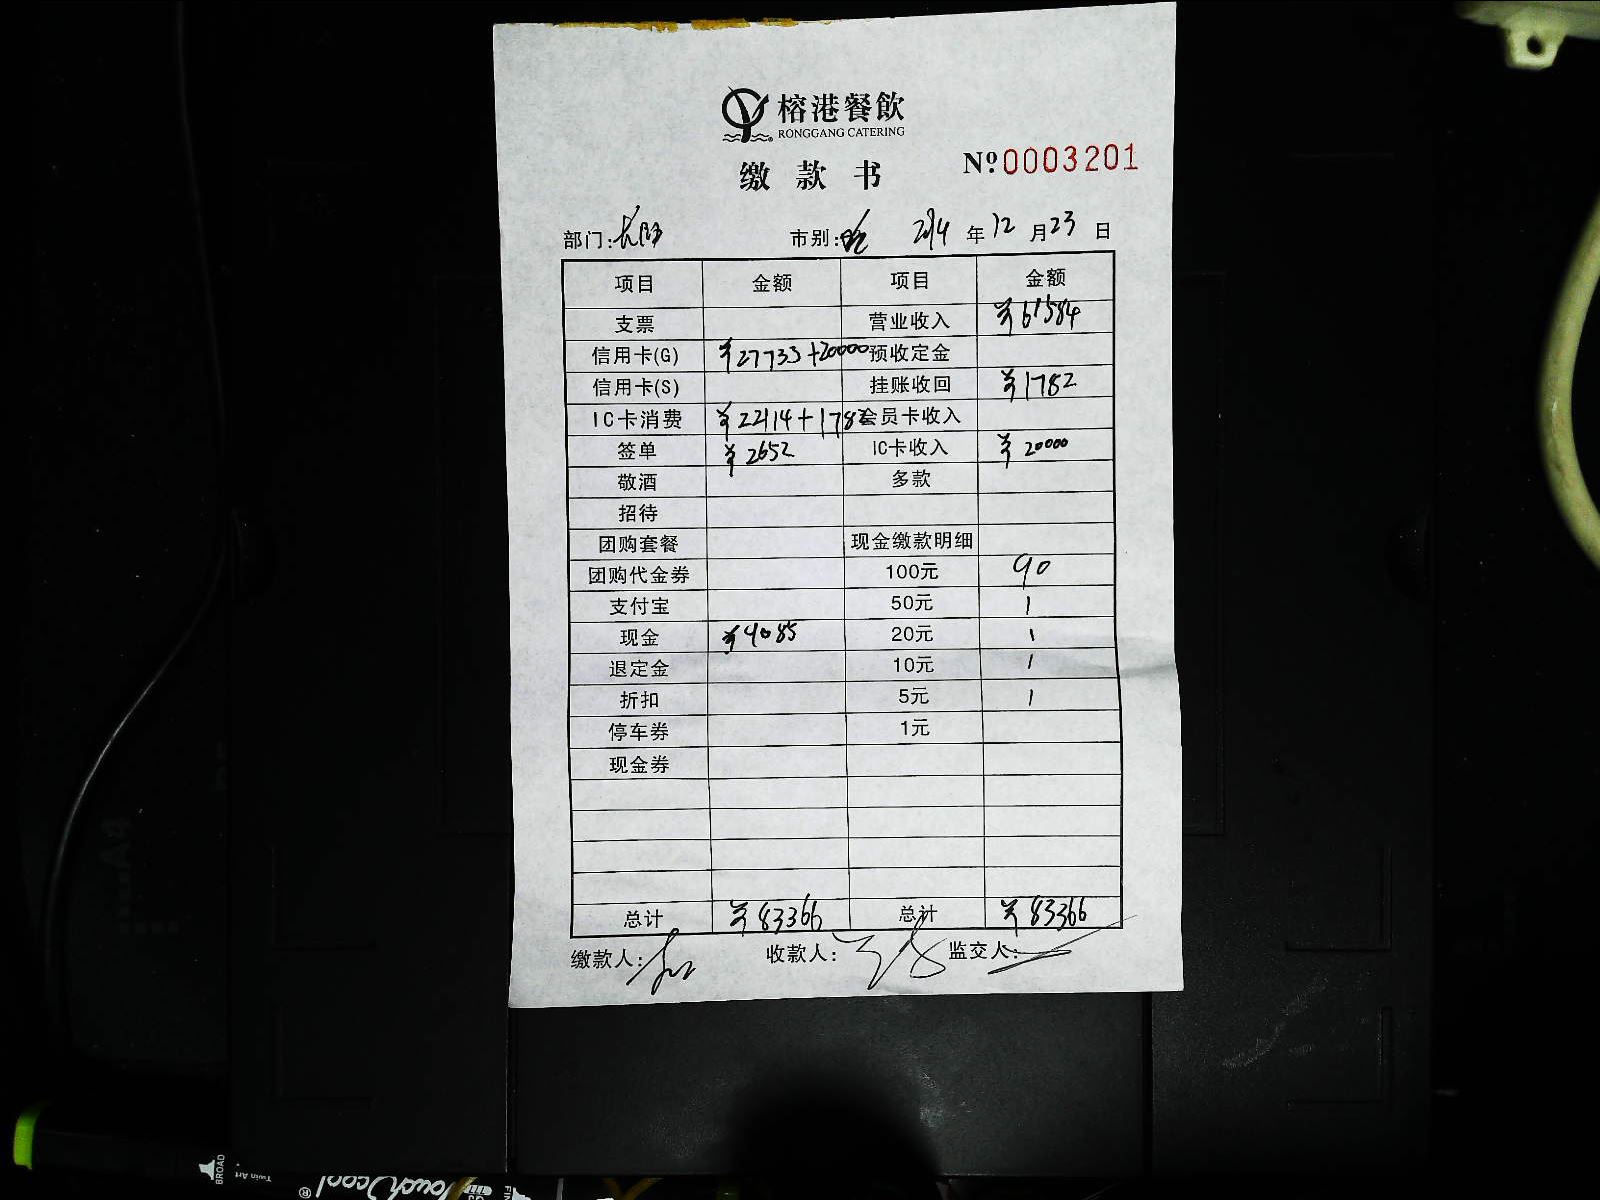 榕港餐飲
RONGGANG CATERING
缴款书 Nº0003201
部门: 市别:晚 2014年12月23日
项目 金额 项目 金额
支票 营业收入 ¥61584
信用卡(G) ¥27733+20000 预收定金
信用卡(S) 挂账收回 ¥1782
IC卡消费 ¥22114+1782 会员卡收入
签单 ¥2652 IC卡收入 ¥20000
敬酒 多款
招待
团购套餐 现金缴款明细
团购代金券 100元 90
支付宝 50元 1
现金 ¥9085 20元 1
退定金 10元 1
折扣 5元 1
停车券 1元
现金券
总计 ¥83366 总计 ¥83366
缴款人: 收款人: 监交人:
BROAD
Twin Art
Touch cool®